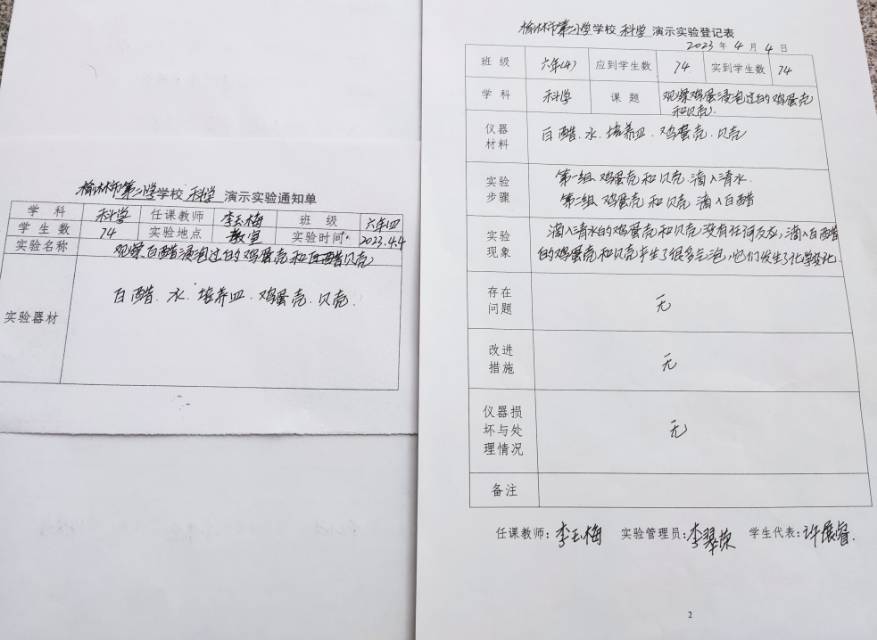 榆林市第二小学学校 科学 演示实验通知单
学科 科学 任课教师 李玉梅 班级 六年四
学生数 74 实验地点 教室 实验时间 2023.4.4
实验名称 观察白醋浸泡过的鸡蛋壳和贝壳
实验器材 白醋、水、培养皿、鸡蛋壳、贝壳.
榆林市第二小学学校 科学 演示实验登记表
2023年4月4日
班级 六年(4) 应到学生数 74 实到学生数 74
学科 科学 课题 观察鸡蛋浸泡过的鸡蛋壳
和贝壳.
仪器
材料
白醋、水、培养皿、鸡蛋壳、贝壳
实验
步骤
第一组 鸡蛋壳和贝壳 滴入清水
第二组 鸡蛋壳和贝壳 滴入白醋
实验
现象
滴入清水的鸡蛋壳和贝壳没有任何反应,滴入白醋
的鸡蛋壳和贝壳产生了很多气泡,它们发生了化学变化.
存在
问题
无
改进
措施
无
仪器损
坏与处
理情况
无
备注
任课教师:李玉梅 实验管理员:李翠 学生代表:许
2